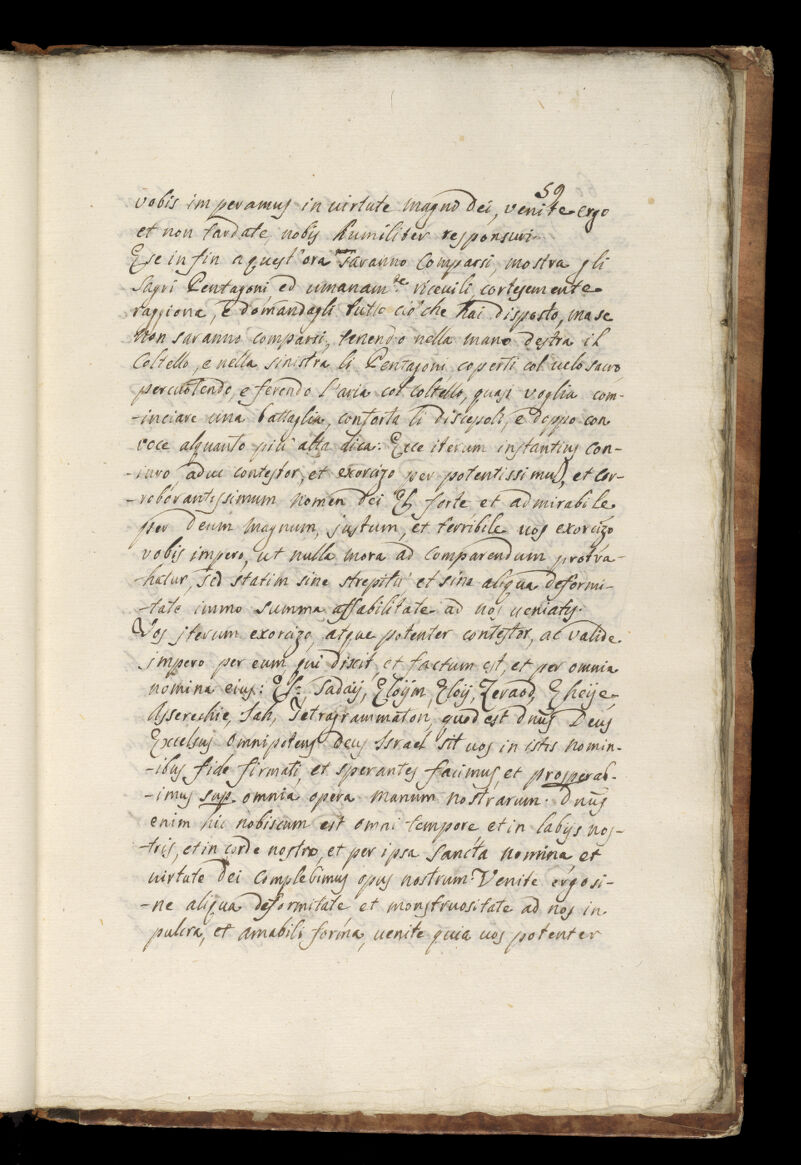 59
vobis imperamus in virtute magno dei, venite ergo
et non tardate nobis humiliter responsuri
E se in fin a quest'ora saranno comparsi, mostra gli
sagri Pentagoni ed umanam.te ricevili cortesemente
raggiona, e domandagli tutto ciò che hai disposto, ma se
non saranno comparsi, tenendo nella mano destra il
coltello, e nella sinistra li Pentagoni coperti col velo sacro
percuotendo, e ferendo l'aria col coltello, quasi voglia com-
-inciare una battaglia, conforta li discepoli, e doppo con
voce alquanto più alta dica: Ecce iterum instantius con-
-iuro aduc contestor, et exorcizo per potentissimum, et cor-
-roborantissimum nomen dei El forte et admirabile
per deum magnum, justum, et terribile vos exorcizo
vobis impero, ut nulla mora ad comparendum protra-
-hatur, sed statim sine strepitu et sine aliqua deformi-
-tate immo summa affabilitate ad nos veniatis.
Vos jterum exorcizo, atque potenter contestor, ac valide
impero per eum qui dixit, et factum est, et per omnia
nomina eius: Sadaij, Eloijm, Eloij, Zevaod, Eheije
Asserechie, Jah, Tetragrammaton, quod est dnus Deus
Excelsus Omnipotens Deus Israel sit vos in istis nomin-
-ibus fide firmati, et sperantes facimus, et prosperab-
-imus sup. omnia opera manum nostrarum. Dnus
enim hic nobiscum est omni tempore et in labijs nos-
-tris, et in corde nostro, et per ipsa sancta nomina et
virtute dei complebimus opus nostrum. Venite ergo si-
-ne aliqua deformitate et monstruositate ad nos in
pulcra, et amabili forma, venite quia vos potenter